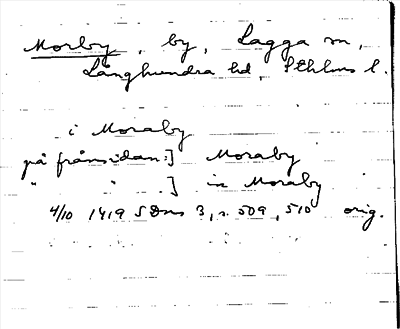 Morby, by, Lagga sn,
Långhundra hd, Sthlms l.
i Moraby
på frånsidan:] Moraby
" " ] in Moraby
4/10 1419 SDns 3, s. 509, 510 orig.